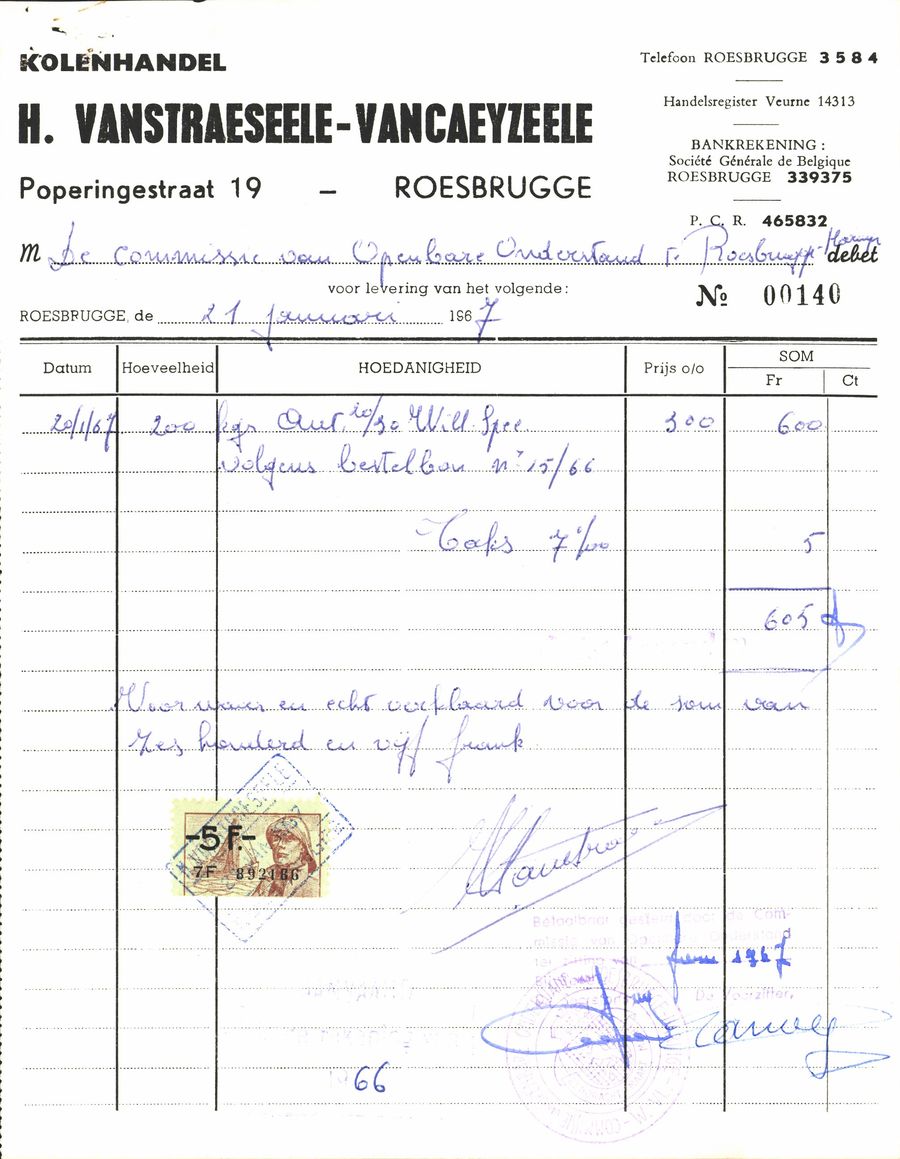 KOLENHANDEL
H. VANSTRAESEELE-VANCAEYZEELE
Poperingestraat 19 – ROESBRUGGE
Telefoon ROESBRUGGE 3584
Handelsregister Veurne 14313
BANKREKENING :
Société Générale de Belgique
ROESBRUGGE 339375
P. C. R. 465832
M De Commissie van Openbare Onderstand v. Roesbrugge-Haringe debet
voor levering van het volgende:
No 00140
ROESBRUGGE, de 21 januari 1967
Datum Hoeveelheid HOEDANIGHEID Prijs o/o SOM
Fr Ct
20/1/67 200 kgs Ant. 20/30 Will Spee 300 600
volgens bestelbon n° 15/66
Taks 7‰ 5
605
Voor waar en echt verklaard voor de som van
zes honderd en vijf frank
-5 F.-
7F 892166
Betaalbaar gesteld door de Com-
missie van Openbare Onderstand
ter zitting van
1967
De Voorzitter,
1966